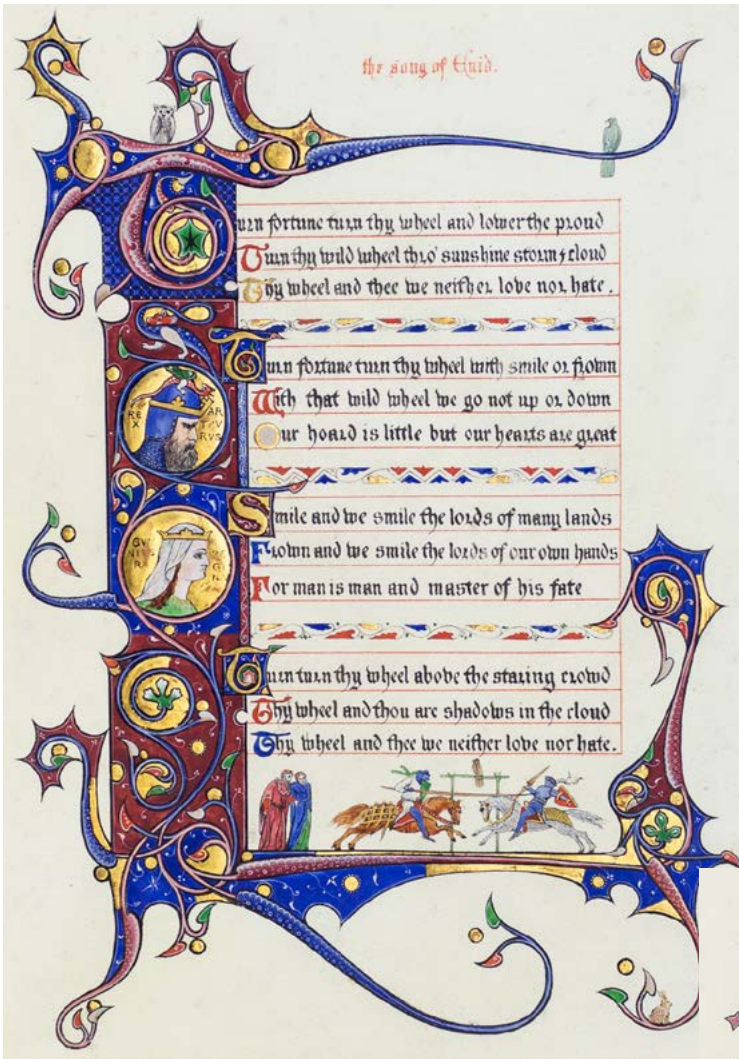 the song of Enid.
Turn fortune turn thy wheel and lower the proud
Turn thy wild wheel thro' sunshine storm & cloud
Thy wheel and thee we neither love nor hate.
Turn fortune turn thy wheel with smile or frown
With that wild wheel we go not up or down
Our hoard is little but our hearts are great
REX ARTURUS
Smile and we smile the lords of many lands
Frown and we smile the lords of our own hands
For man is man and master of his fate
Turn turn thy wheel above the staring crowd
Thy wheel and thou are shadows in the cloud
Thy wheel and thee we neither love nor hate.